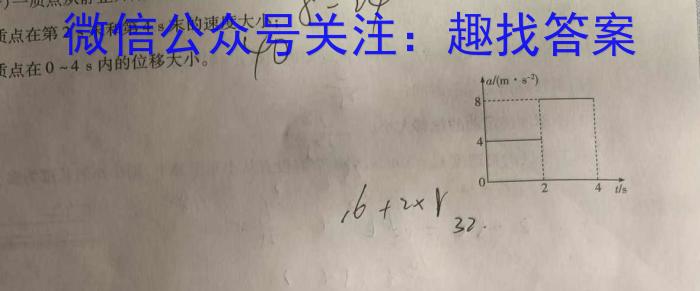 一质点从静止
质点在第2 s末和第4 s末的速度大小；
微信公众号关注：趣找答案
质点在0～4 s内的位移大小。
40
a/(m·s⁻²)
8
4
0 2 4 t/s
16+2×8
32.